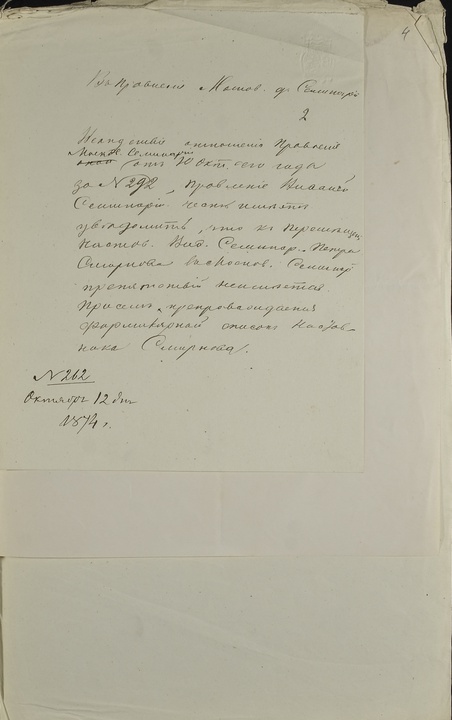 4
Въ Правленіе Москов. д. Семинаріи
2
Вслѣдствіе отношенія Правленія
Москов. Семинаріи
отъ 10 Окт. сего года
за № 292, Правленіе Виѳанск.
Семинаріи честь имѣетъ
увѣдомить, что къ перемѣщен.
настав. Виѳ. Семинар. Петра
Смирнова въ Москов. Семинар.
препятствій неимѣется.
При семъ препровождается
формулярный списокъ Настав-
ника Смирнова.
№ 262
Октября 12 дня
1874 г.